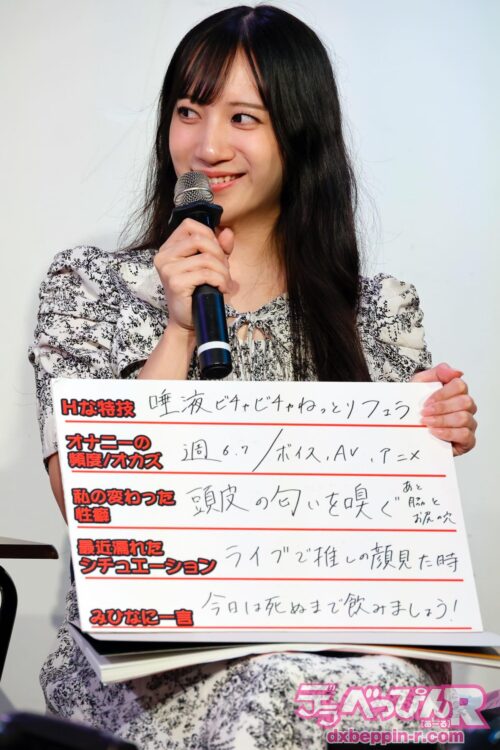 Hな特技 唾液ビチャビチャねっとりフェラ
オナニーの
頻度/オカズ 週6.7/ボイス、AV、アニメ
私の変わった
性癖 頭皮の匂いを嗅ぐ あと
脇と
お尻の穴
最近濡れた
シチュエーション ライブで推しの顔見た時
みひなに一言 今日は死ぬまで飲みましょう!
デラべっぴんR
[あーる]
dxbeppin-r.com